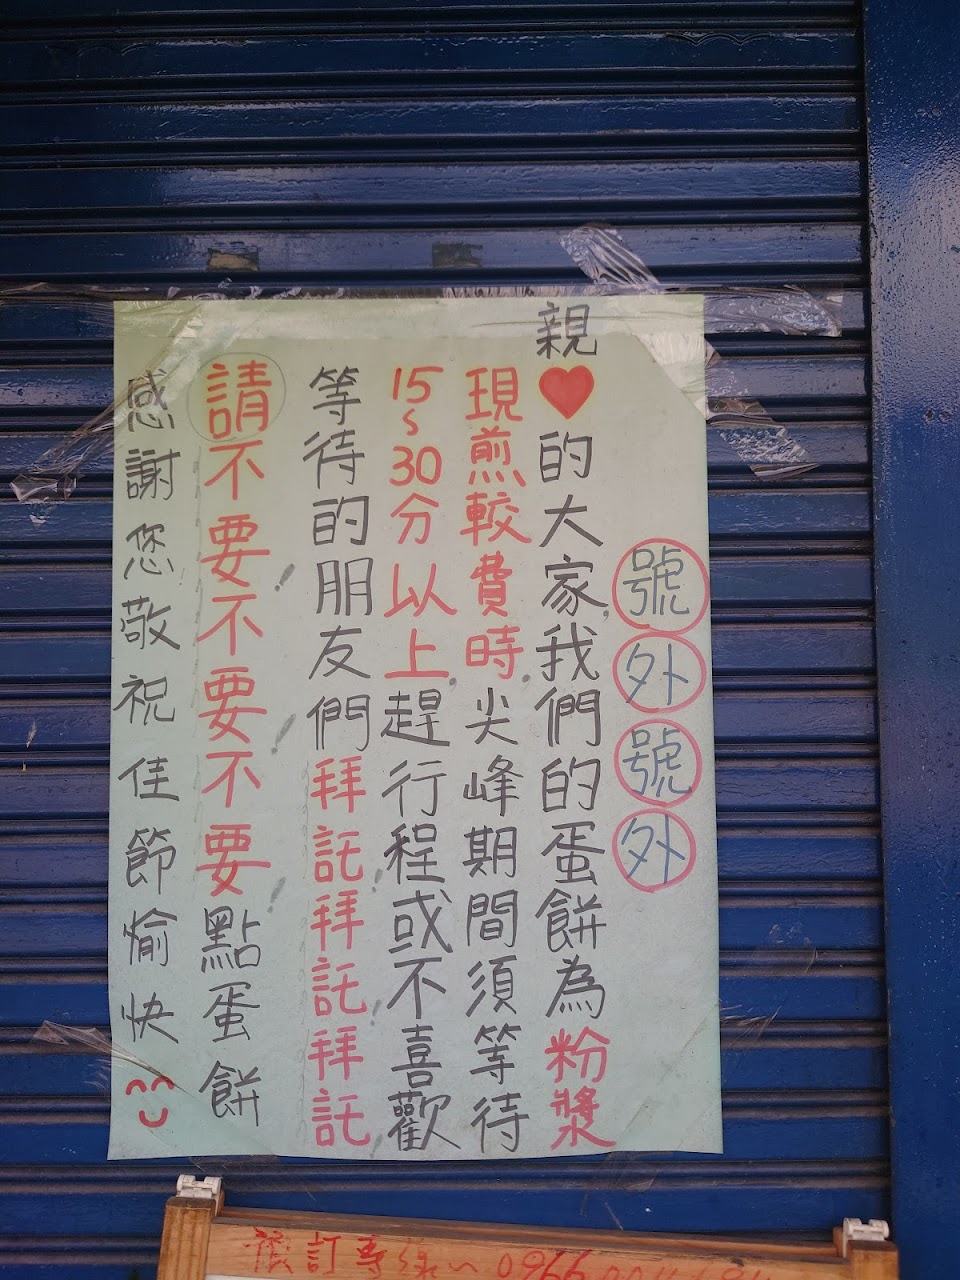 號外號外
親❤的大家,我們的蛋餅為粉漿
現煎較費時,尖峰期間須等待
15~30分以上,趕行程或不喜歡
等待的朋友們拜託,拜託,拜託
請不要!不要!不要!點蛋餅
感謝您敬祝佳節愉快
預訂專線~0966